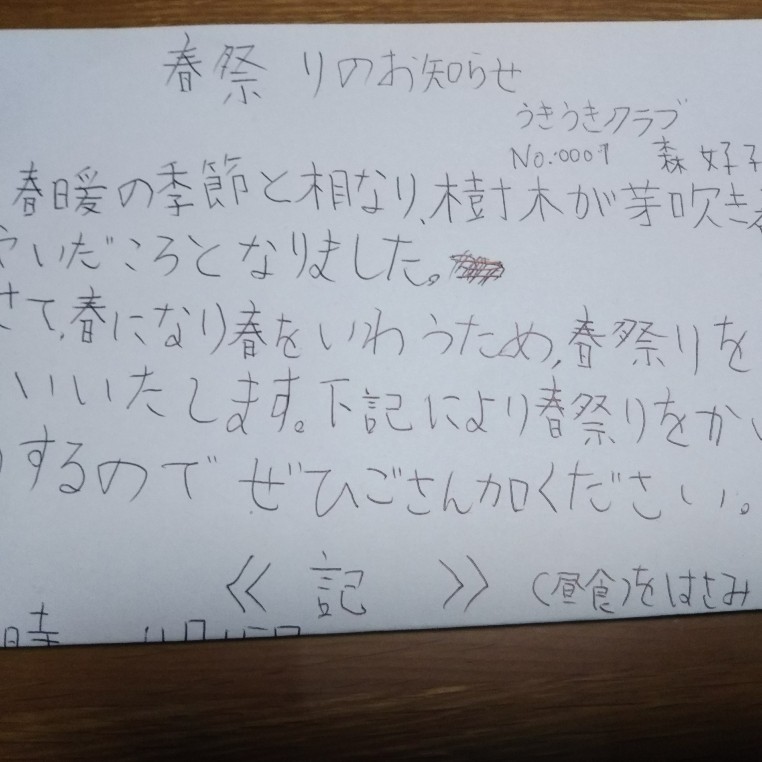 春祭りのお知らせ
うきうきクラブ
No.0001 森 好子
春暖の季節と相なり、樹木が芽吹き
いだころとなりました。
さて、春になり春をいわうため、春祭りを
いいたします。下記により春祭りをかい
するのでぜひごさん加ください。
≪ 記 ≫ (昼食)をはさみ